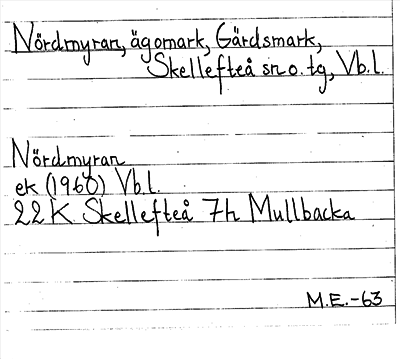 Nördmyran, ägomark, Gärdsmark,
Skellefteå sn o. tg, Vb.l.
Nördmyran
ek (1960) Vb.l.
22K Skellefteå 7h Mullbacka
M.E.-63